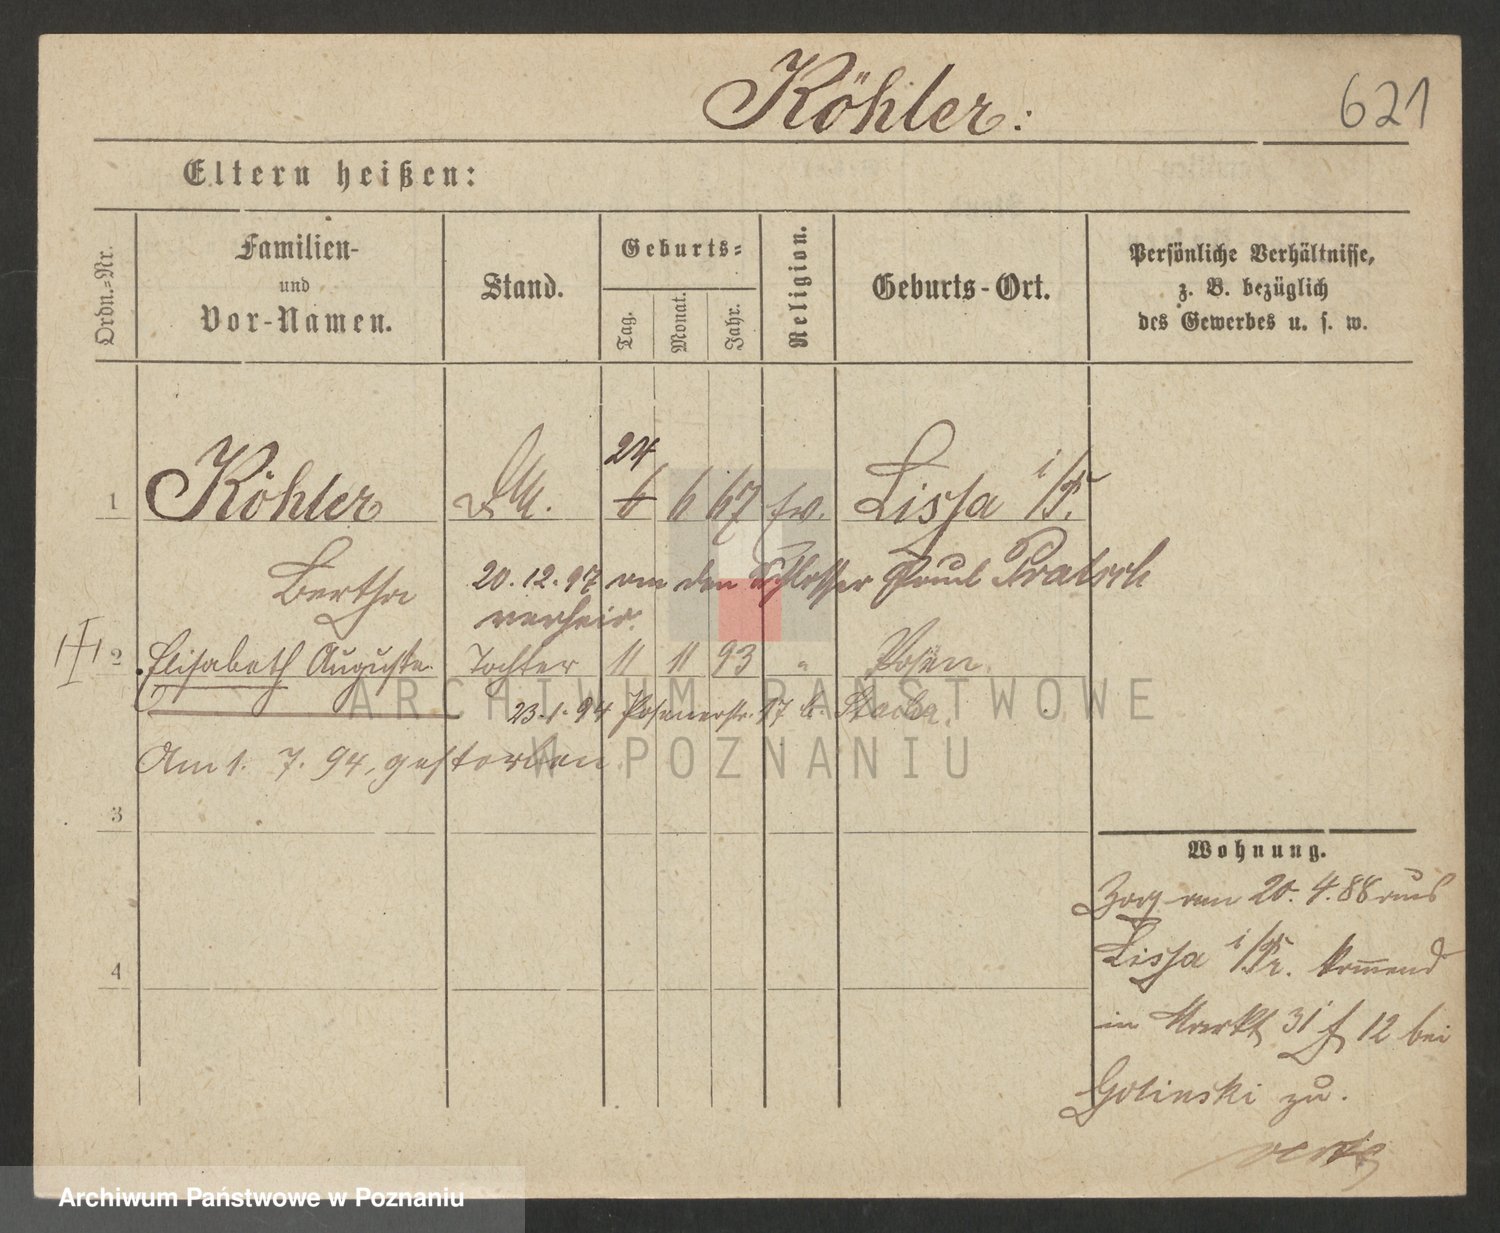 Köhler:
621
Eltern heißen:
Ordn.-Nr.
Familien-
und
Vor-Namen.
Stand.
Geburts-
Tag.
Monat.
Jahr.
Religion.
Geburts-Ort.
Persönliche Verhältnisse,
z. B. bezüglich
des Gewerbes u. s. w.
24
1 Köhler 6 6 67 ev. Lissa i/P.
Bertha 20.12.97 an den Schlosser Paul
verheir.
2 Elisabeth Auguste Tochter 11 11 93 " Posen.
23.1.94 Posenerstr. 17
Am 1. 7. 94, gestorben
3
4
Wohnung.
Zog am 20. 4. 88 aus
Lissa i/Pr. kommend
in Markt 31 12 bei
Golinski zu.
ARCHIWUM PAŃSTWOWE
W POZNANIU
Archiwum Państwowe w Poznaniu